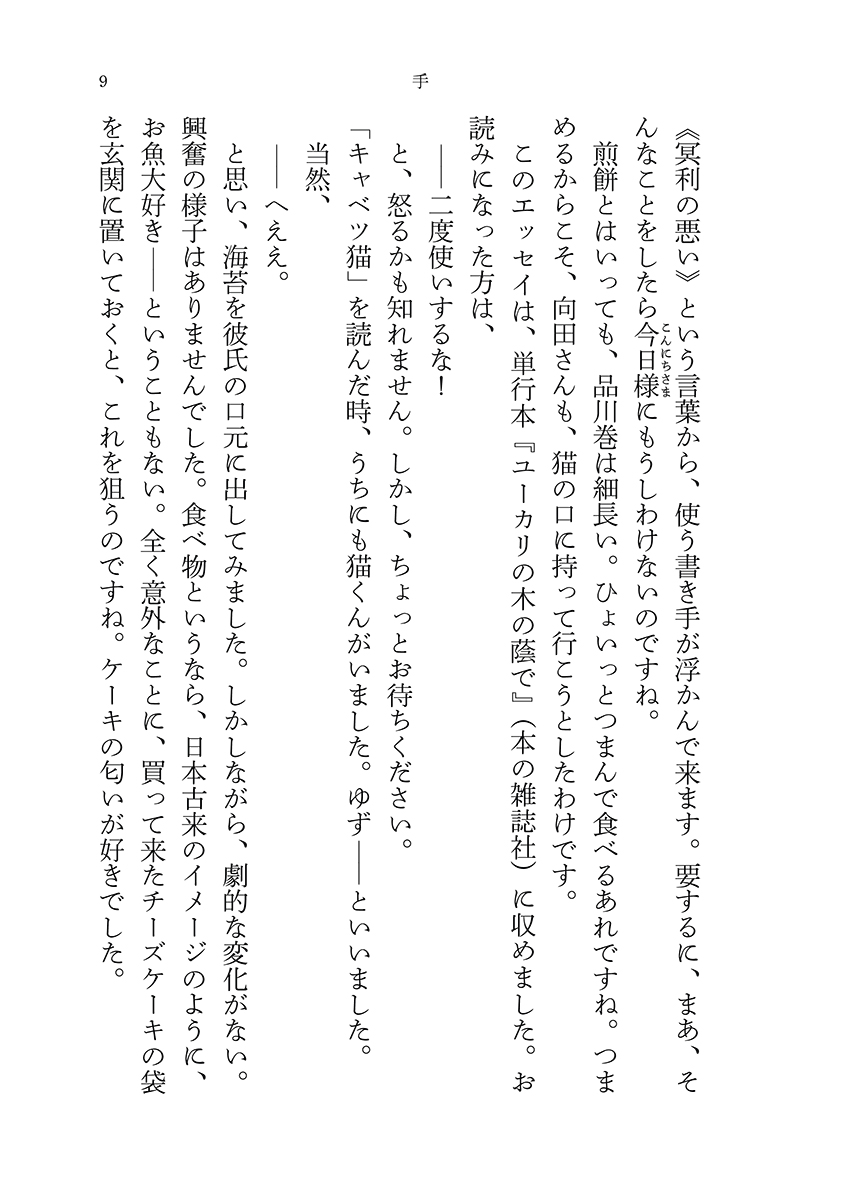 手
9
《冥利の悪い》という言葉から、使う書き手が浮かんで来ます。要するに、まあ、そ
んなことをしたら今日様にもうしわけないのですね。
こんにちさま
煎餅とはいっても、品川巻は細長い。ひょいっとつまんで食べるあれですね。つま
めるからこそ、向田さんも、猫の口に持って行こうとしたわけです。
このエッセイは、単行本『ユーカリの木の蔭で』（本の雑誌社）に収めました。お
読みになった方は、
――二度使いするな！
と、怒るかも知れません。しかし、ちょっとお待ちください。
「キャベツ猫」を読んだ時、うちにも猫くんがいました。ゆず――といいました。
当然、
――へええ。
と思い、海苔を彼氏の口元に出してみました。しかしながら、劇的な変化がない。
興奮の様子はありませんでした。食べ物というなら、日本古来のイメージのように、
お魚大好き――ということもない。全く意外なことに、買って来たチーズケーキの袋
を玄関に置いておくと、これを狙うのですね。ケーキの匂いが好きでした。